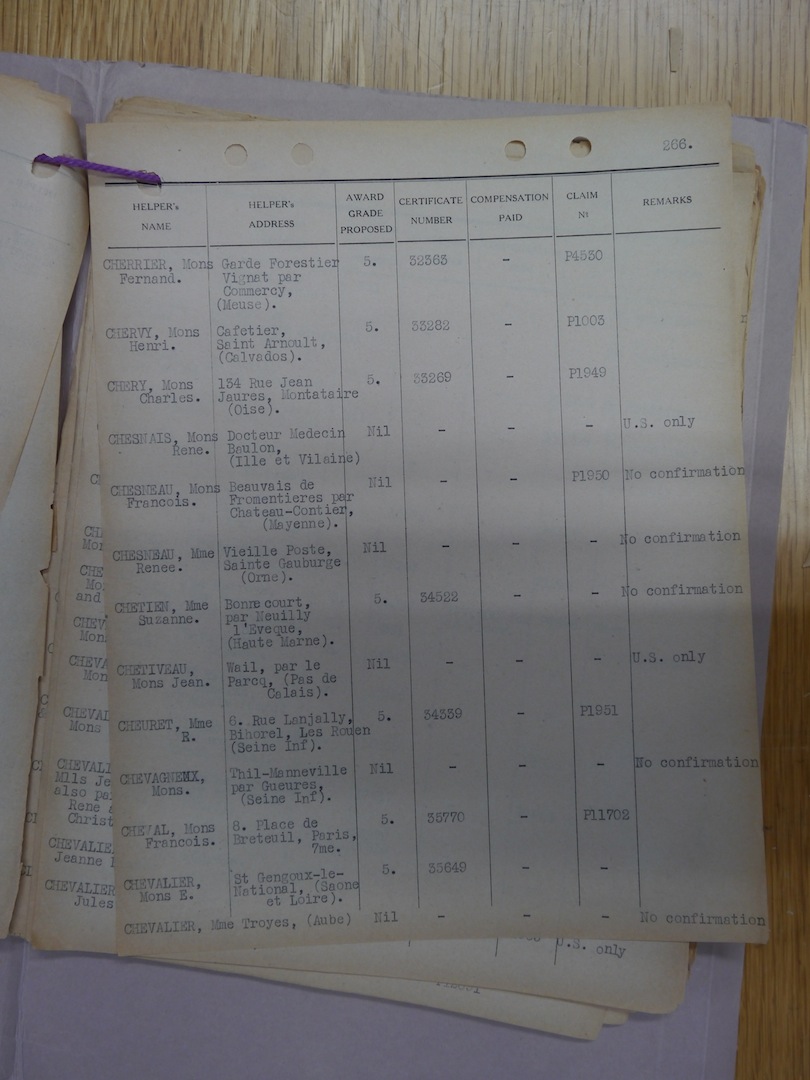 266.
HELPER's NAME HELPER's ADDRESS AWARD GRADE PROPOSED CERTIFICATE NUMBER COMPENSATION PAID CLAIM Nº REMARKS
CHERRIER, Mons Garde Forestier 5. 32363 - P4530
Fernand. Vignat par
Commercy,
(Meuse).
CHERVY, Mons Cafetier, 5. 33282 - P1003
Henri. Saint Arnoult,
(Calvados).
CHERY, Mons 134 Rue Jean 5. 33269 - P1949
Charles. Jaures, Montataire
(Oise).
CHESNAIS, Mons Docteur Medecin Nil - - - U.S. only
Rene. Baulon,
(Ille et Vilaine)
CHESNEAU, Mons Beauvais de Nil - - P1950 No confirmation
Francois. Fromentieres par
Chateau-Contier,
(Mayenne).
CHESNEAU, Mme Vieille Poste, Nil - - - No confirmation
Renee. Sainte Gauburge
(Orne).
CHETIEN, Mme Bonnecourt, 5. 34522 - - No confirmation
Suzanne. par Neuilly
l'Eveque,
(Haute Marne).
CHETIVEAU, Wail, par le Nil - - - U.S. only
Mons Jean. Parcq, (Pas de
Calais).
CHEURET, Mme 6. Rue Lanjally, 5. 34339 - P1951
R. Bihorel, Les Rouen
(Seine Inf).
Thil-Manneville Nil - - - No confirmation
Mons. par Gueures,
(Seine Inf).
CHEVAL, Mons 8. Place de 5. 35770 - P11702
Francois. Breteuil, Paris,
7me.
CHEVALIER, St Gengoux-le- 5. 35649 - -
Mons E. National, (Saone
et Loire).
CHEVALIER, Mme Troyes, (Aube) Nil - - - No confirmation
U.S. only